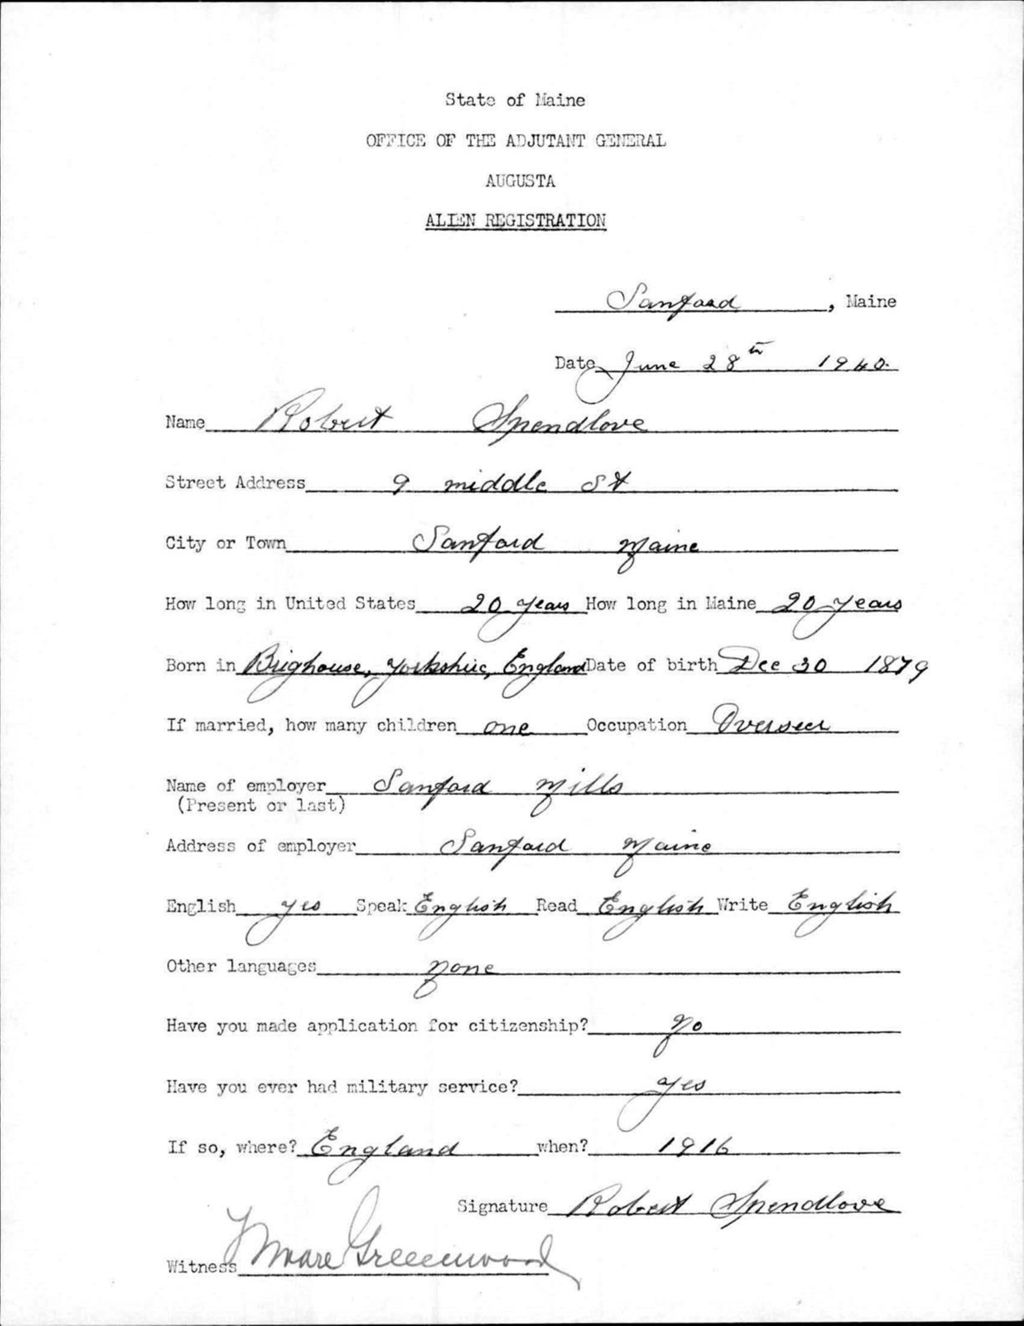 State of Maine
OFFICE OF THE ADJUTANT GENERAL
AUGUSTA
ALIEN REGISTRATION
Sanford, Maine
Date June 28th 1940.
Name Robert Spendlove
Street Address 9 middle St
City or Town Sanford Maine
How long in United States 20 years How long in Maine 20 years
Born in Brighouse, Yorkshire, England Date of birth Dec 30 1879
If married, how many children one Occupation Overseer
Name of employer Sanford Mills
(Present or last)
Address of employer Sanford Maine
English yes Speak English Read English Write English
Other languages None
Have you made application for citizenship? No
Have you ever had military service? yes
If so, where? England when? 1916
Signature Robert Spendlove
Witness Greenwood